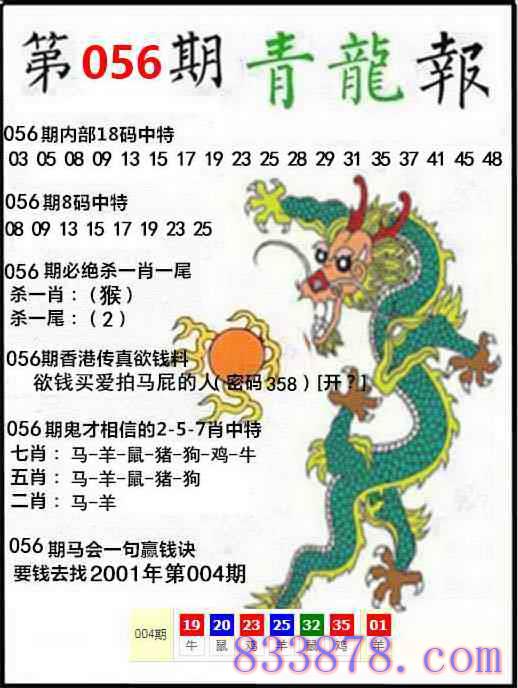 第056期 青龍報
056期内部18码中特
03 05 08 09 13 15 17 19 23 25 28 29 31 35 37 41 45 48
056期8码中特
08 09 13 15 17 19 23 25
056期必绝杀一肖一尾
杀一肖：(猴)
杀一尾：(2)
056期香港传真欲钱料
欲钱买爱拍马屁的人(密码358)[开？]
056期鬼才相信的2-5-7肖中特
七肖：马-羊-鼠-猪-狗-鸡-牛
五肖：马-羊-鼠-猪-狗
二肖：马-羊
056期马会一句赢钱诀
要钱去找2001年第004期
004期 19 20 23 25 32 35 01
牛 鼠 鸡 羊 鼠 鸡 羊
833878.com